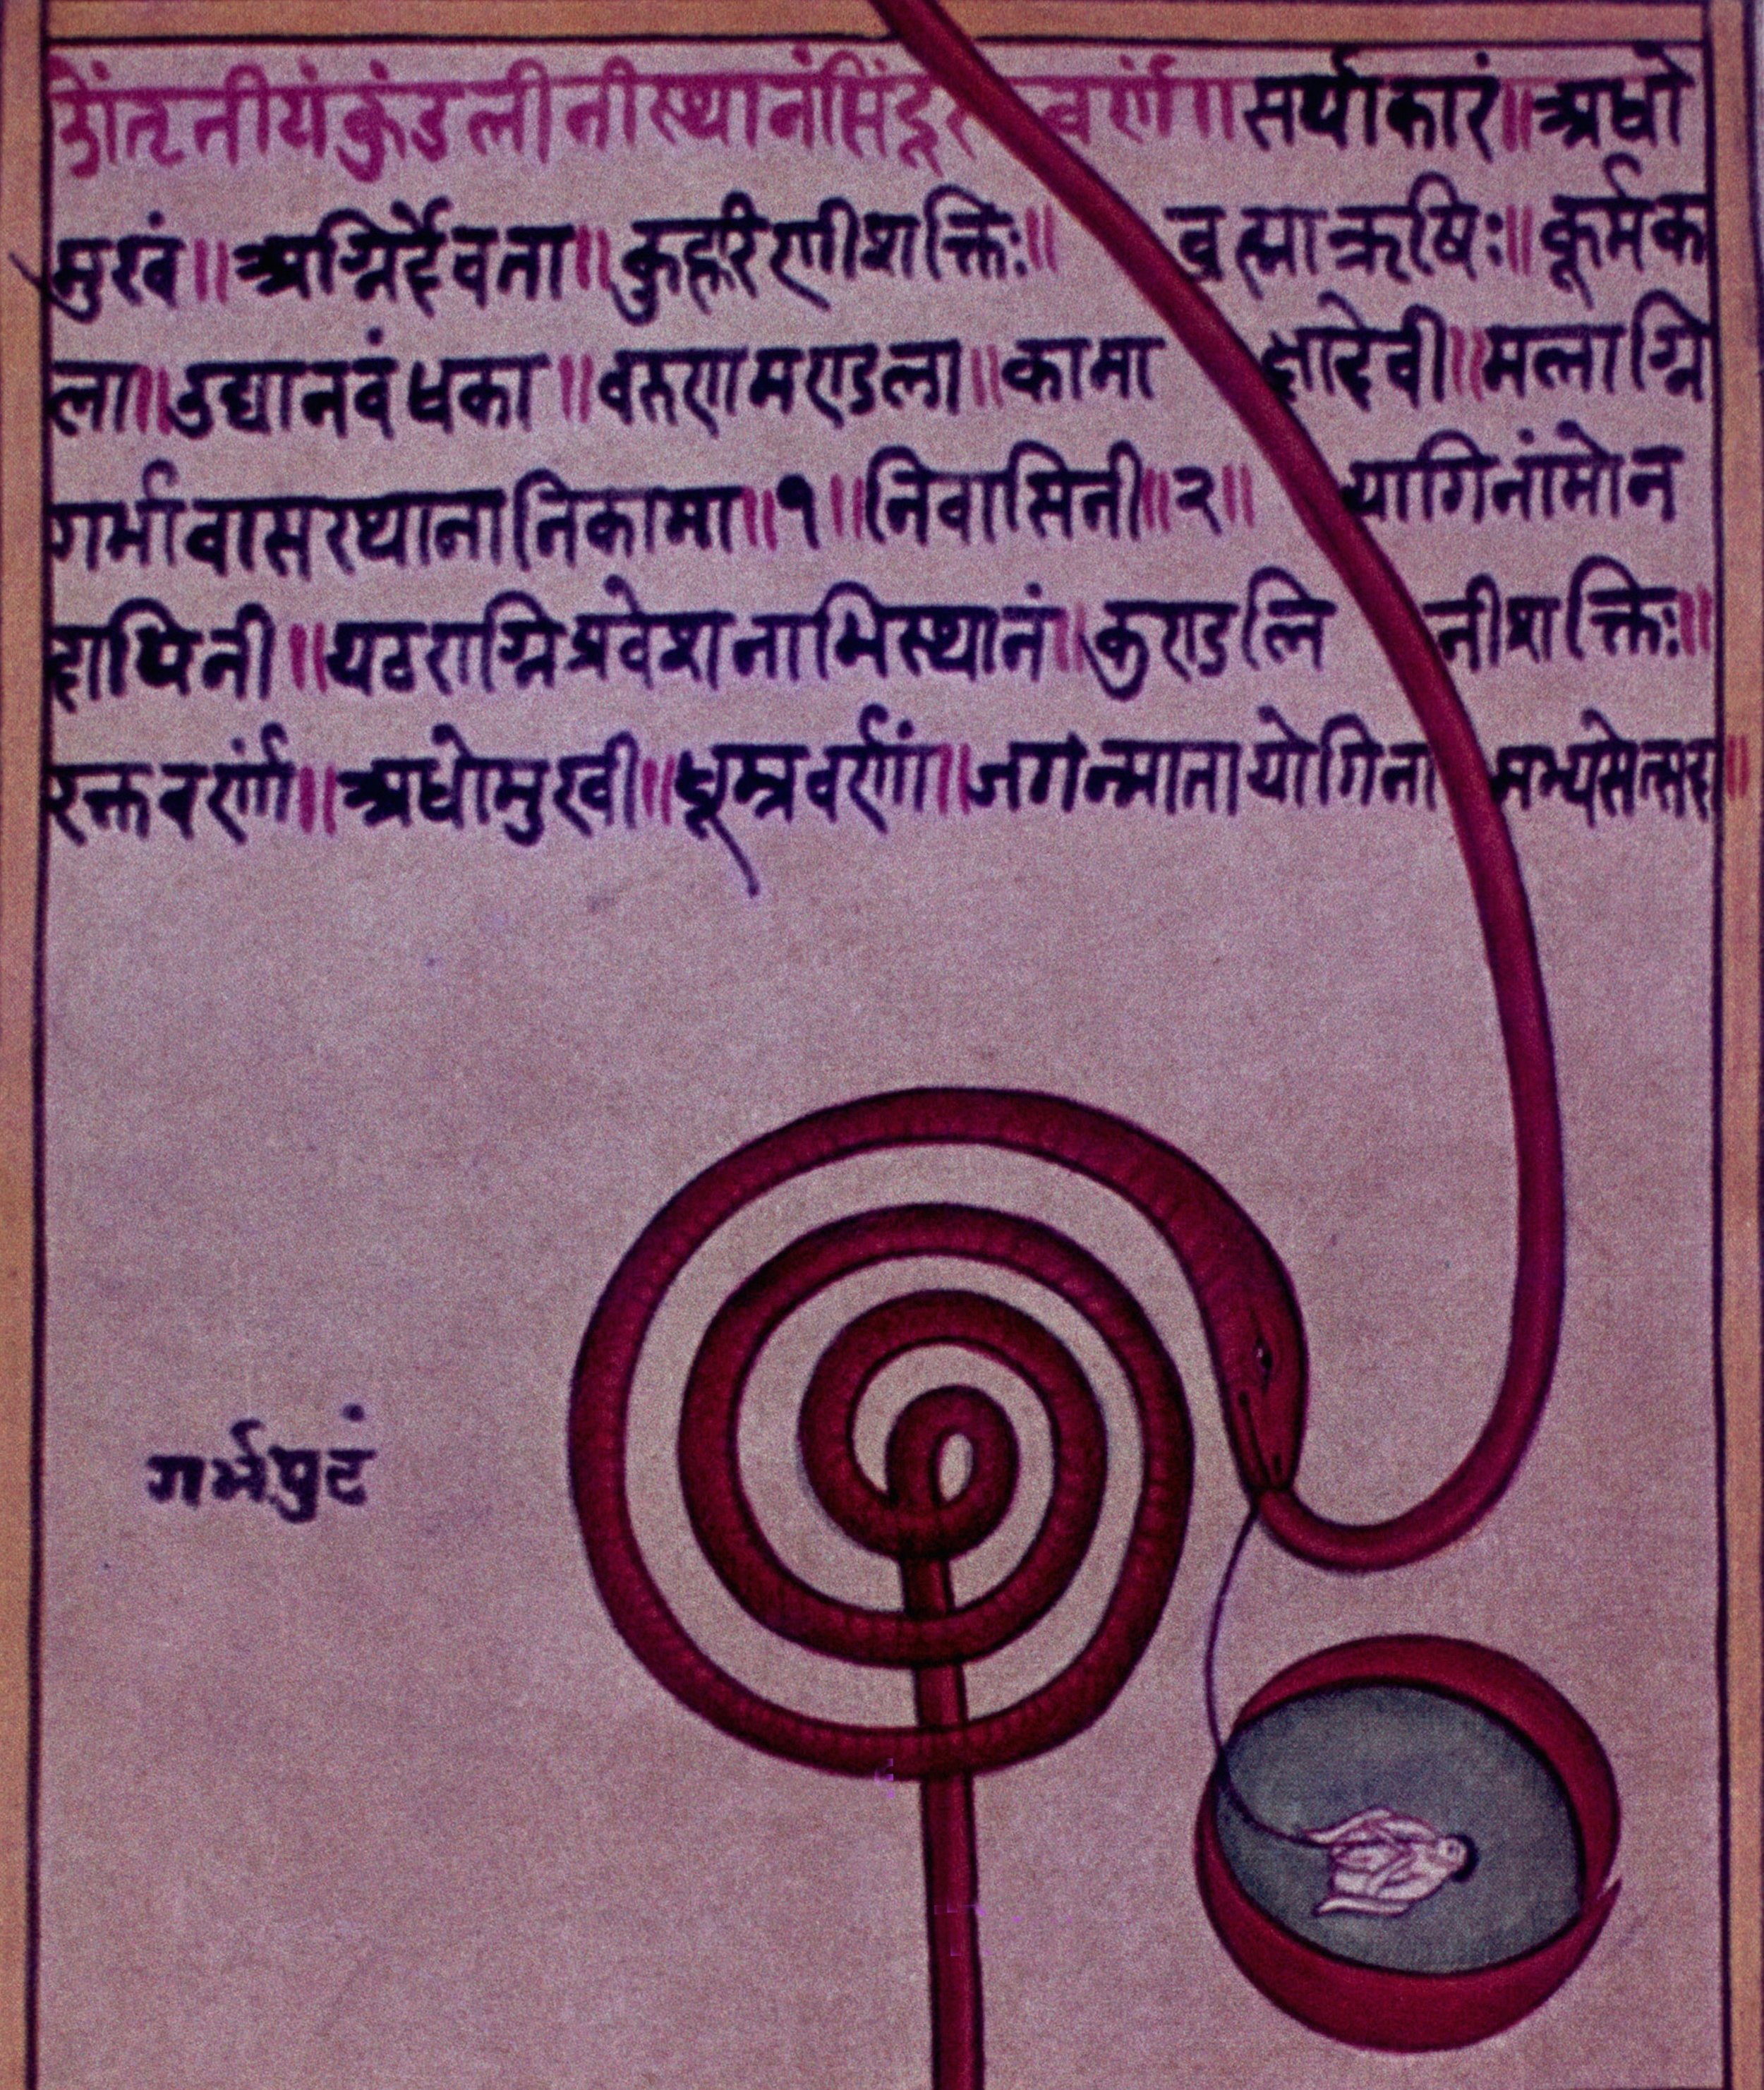 तृतीयंकुंडलीनीस्थानंसिंदूर वर्णं सर्पाकारं॥अधो
मुखं॥अग्निर्द्दैवता॥ शक्तिः॥ ब्रह्मा ऋषिः॥कूर्मक
ला॥उद्यानबंधका॥वरुणमण्डला॥कामा क्षादेवी॥मलाग्नि
गर्भावासस्थानानिकामा॥१॥निवासिनी॥२॥
यठराग्निप्रवेशनाभिस्थानं॥कुण्डलि नीशक्तिः॥
रक्तवर्णं॥अधोमुखी॥धूम्रवर्णं॥जगन्मातायोगिना मभ्यसेत्सदा॥
गर्भपुटं